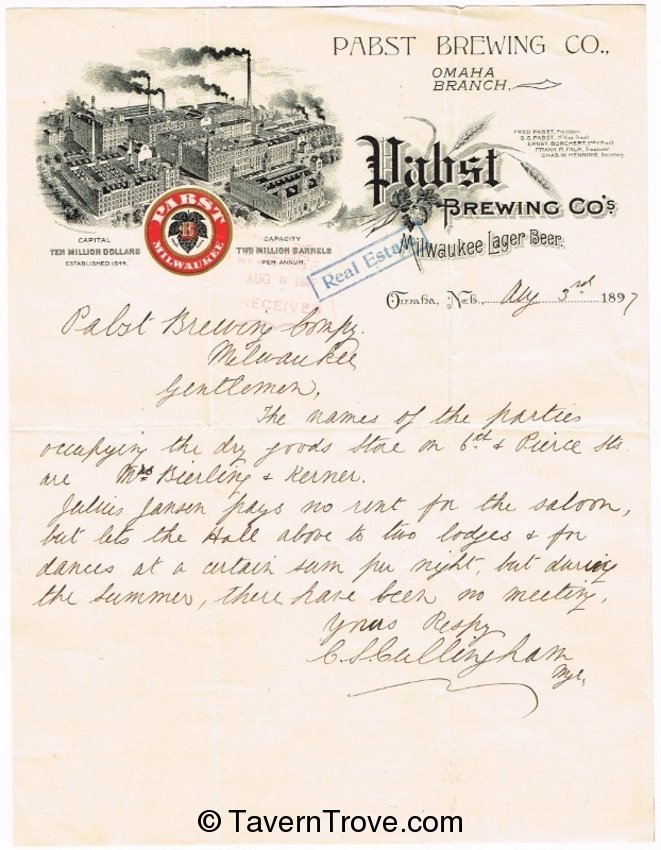 PABST BREWING CO.,
OMAHA
BRANCH,
FRED PABST, President.
ERNST BORCHERT, 2nd V. Prest.
FRANK R. FALK, Treasurer.
CHAS. W. HENNING, Secretary.
Pabst
BREWING CO'S.
Milwaukee Lager Beer.
PABST
B
MILWAUKEE
CAPITAL
TEN MILLION DOLLARS
ESTABLISHED 1844.
CAPACITY
TWO MILLION BARRELS
PER ANNUM.
AUG 4
RECEIVED
Real Estate
Omaha, Neb., Aug 3rd 1897
Pabst Brewing Compy.
Milwaukee
Gentlemen,
The names of the parties
occupying the dry goods store on 6th & Pierce Sts
are Mrs Bierling & Kerner.
Julius Jansen pays no rent for the saloon,
but lets the Hall above to two lodges & for
dances at a certain sum per night, but during
the summer, there have been no meeting,
Yours Respy
C. S. Cullingham
Mgr.
© TavernTrove.com